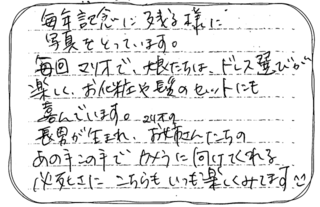 毎年記念に残る様に
写真をとっています。
毎回マリオで、娘たちは、ドレス選びが
楽しく、お化粧や髪のセットにも
喜んでいます。2才の
長男が生まれ、お姉さんたちの
あの手この手でカメラに向けてくれる
必死さに こちらもいつも楽しくみてます